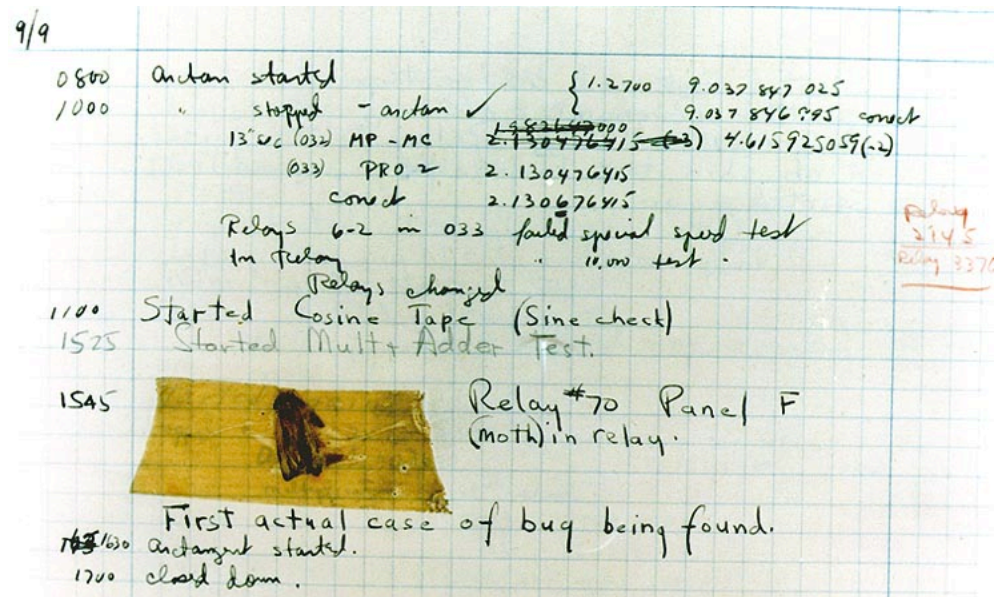 9/9
0800 arctan started { 1.2700 9.037 847 025
1000 " stopped - arctan ✓ 9.037 846 995 correct
13"uc (032) MP - MC 1.982647000 2.130476415 (-3) 4.615925059(-2)
(033) PRO 2 2.130476415
correct 2.130676415
Relays 6-2 in 033 failed special speed test
In Relay " 10,000 test.
Relay
2145
Relay 3370
Relays changed
1100 Started Cosine Tape (Sine check)
1525 Started Mult + Adder Test.
1545 Relay #70 Panel F
(moth) in relay.
First actual case of bug being found.
1630 arctangent started.
1700 closed down.